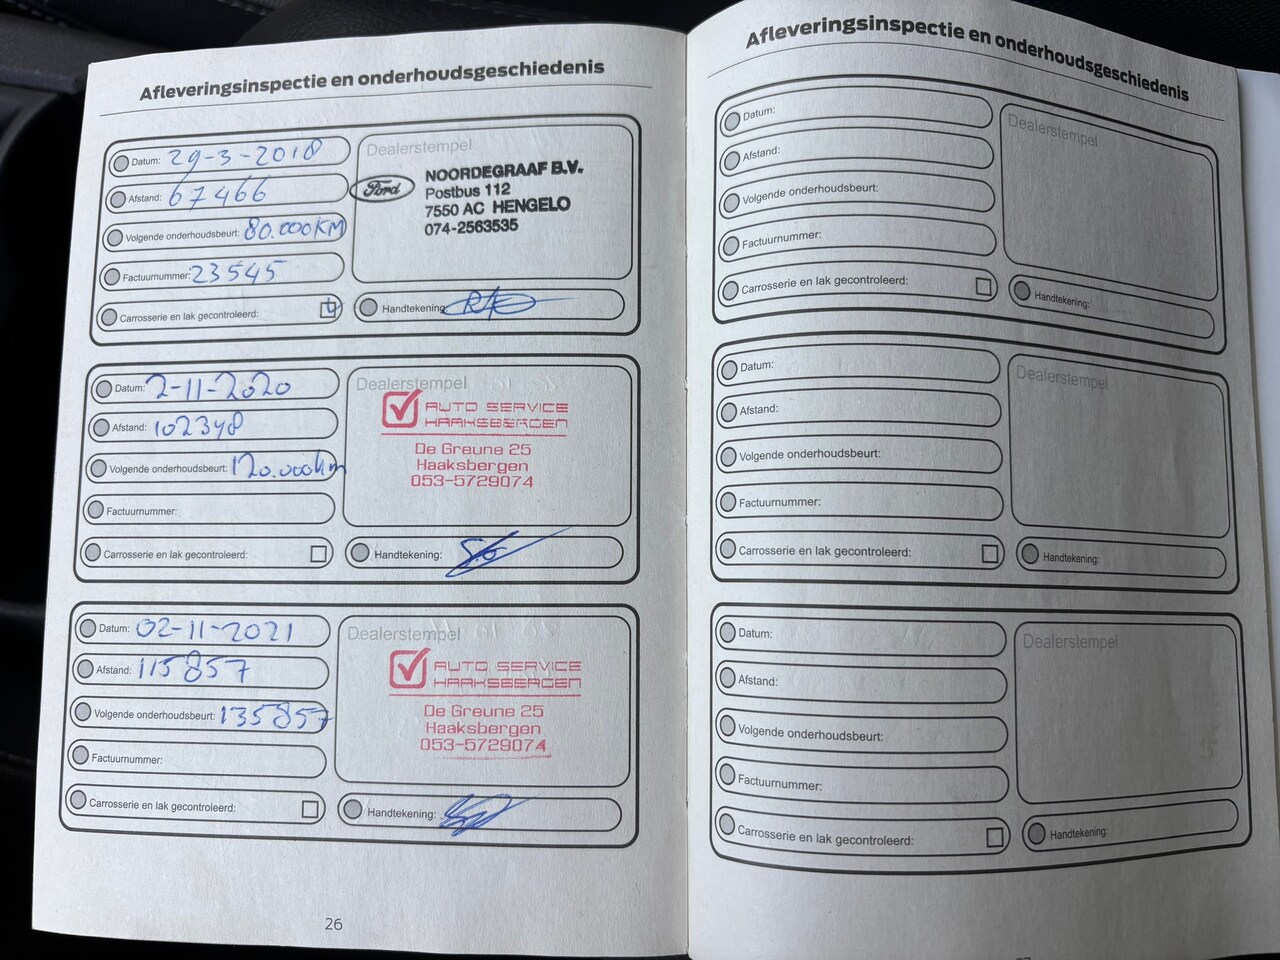 Afleveringsinspectie en onderhoudsgeschiedenis
Datum: 29-3-2018
Afstand: 67466
Volgende onderhoudsbeurt: 80.000KM
Factuurnummer: 23545
Carrosserie en lak gecontroleerd:
Dealerstempel
Ford
NOORDEGRAAF B.V.
Postbus 112
7550 AC HENGELO
074-2563535
Handtekening:
Datum: 2-11-2020
Afstand: 102348
Volgende onderhoudsbeurt: 120.000km
Factuurnummer:
Carrosserie en lak gecontroleerd:
Dealerstempel
AUTO SERVICE
HAAKSBERGEN
De Greune 25
Haaksbergen
053-5729074
Handtekening:
Datum: 02-11-2021
Afstand: 115857
Volgende onderhoudsbeurt: 135857
Factuurnummer:
Carrosserie en lak gecontroleerd:
Dealerstempel
AUTO SERVICE
HAAKSBERGEN
De Greune 25
Haaksbergen
053-5729074
Handtekening:
26
Afleveringsinspectie en onderhoudsgeschiedenis
Datum:
Afstand:
Volgende onderhoudsbeurt:
Factuurnummer:
Carrosserie en lak gecontroleerd:
Dealerstempel
Handtekening:
Datum:
Afstand:
Volgende onderhoudsbeurt:
Factuurnummer:
Carrosserie en lak gecontroleerd:
Dealerstempel
Handtekening:
Datum:
Afstand:
Volgende onderhoudsbeurt:
Factuurnummer:
Carrosserie en lak gecontroleerd:
Dealerstempel
Handtekening: